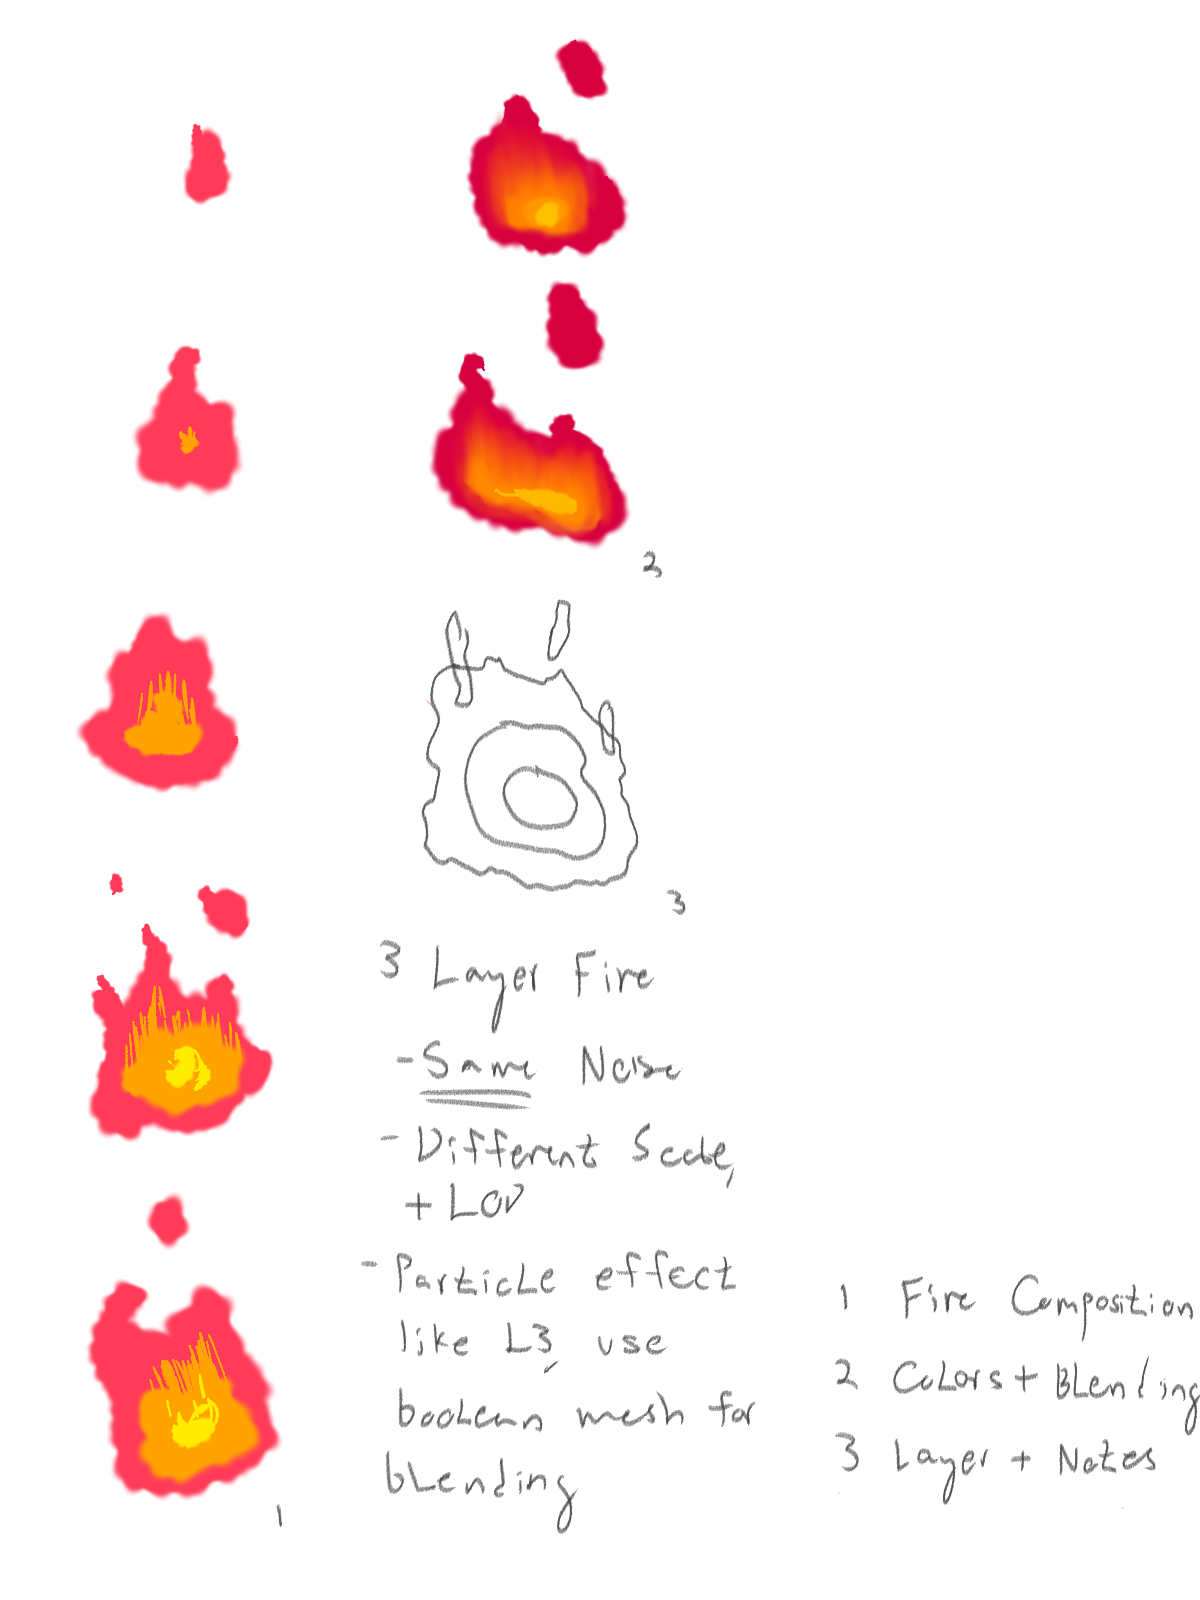 2
3
3 Layer Fire
- Same Noise
- Different Scale,
+ LOD
- Particle effect
like L3, use
boolean mesh for
blending
1
1 Fire Compostion
2 Colors + Blending
3 Layer + Notes